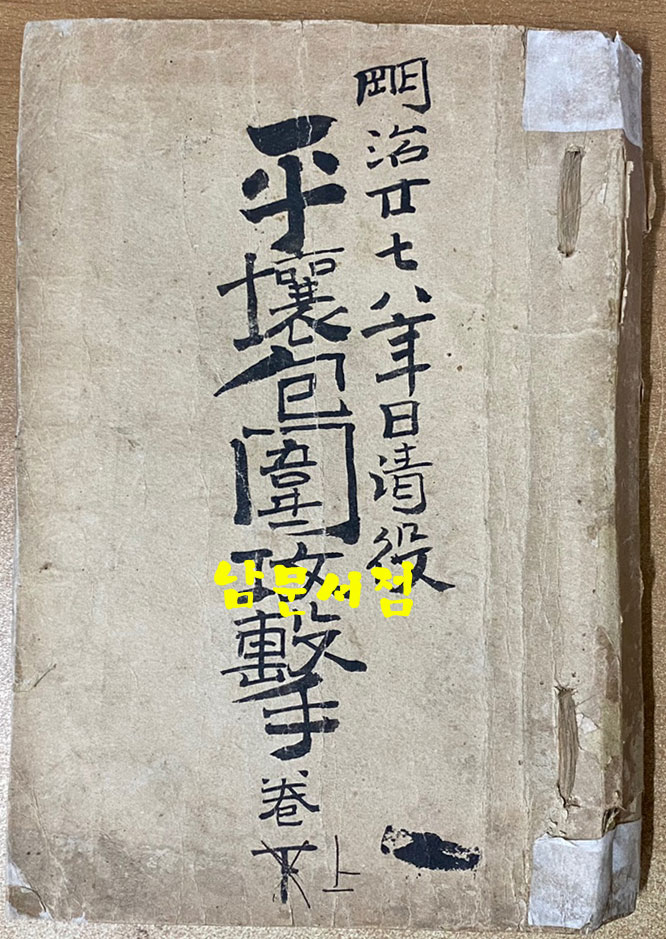 明治廿七八年日清役
平壤包圍攻擊
卷下上
남문서점